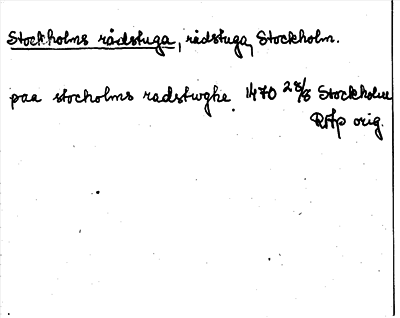 Stockholms rådstuga, rådstuga, Stockholm.
paa stocholms radstwghe. 1470 28/8 Stockholm
RAp orig.